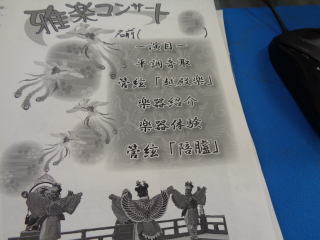 雅楽コンサート
名前(　　　　)
－演目－
平調音取
管絵「越殿楽」
楽器紹介
楽器体験
管絵「陪臚」